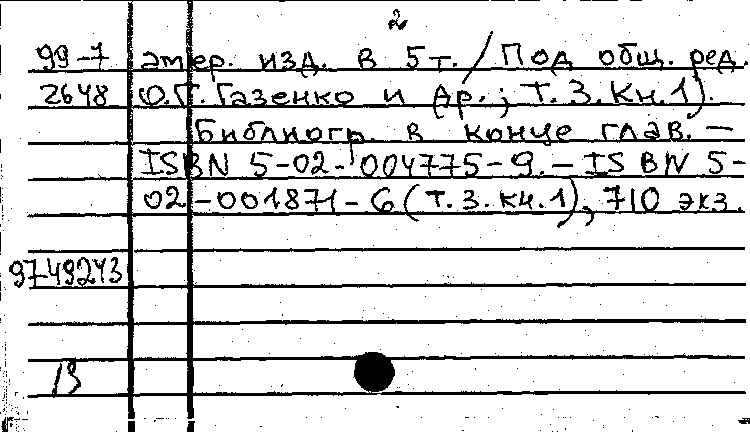 2
99-7 амер. изд. в 5 т. / Под общ. ред.
2648 О.Г. Газенко и др.; Т. 3. Кн. 1).
Библиогр. в конце глав. —
ISBN 5-02-004775-9. — ISBN 5-
02-001871-6 (Т. 3. кн. 1), 710 экз.
97-49243
13